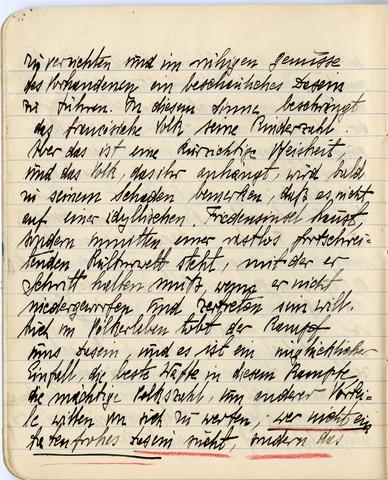 zu verzichten und im ruhigen Genusse
des Vorhandenen ein beschauliches Dasein
zu führen. In diesem Sinne beschränkt
das französische Volk seine Kinderzahl.
Aber das ist eine kurzsichtige Weisheit
und das Volk, das ihr anhängt, wird bald
zu seinem Schaden bemerken, daß es nicht
auf einer idyllischen Friedensinsel haust,
sondern inmitten einer rastlos fortschrei-
tenden Kulturwelt steht, mit der er
Schritt halten muß, wenn er nicht
niedergeworfen und zertreten sein will.
Auch im Völkerleben tobt der Kampf
ums Dasein, und es ist ein unglücklicher
Einfall, die beste Waffe in diesem Kampfe,
die mächtige Volkszahl, um anderer Vortei-
le willen von sich zu werfen, wer nicht ein
tatenfrohes Dasein sucht, sondern das